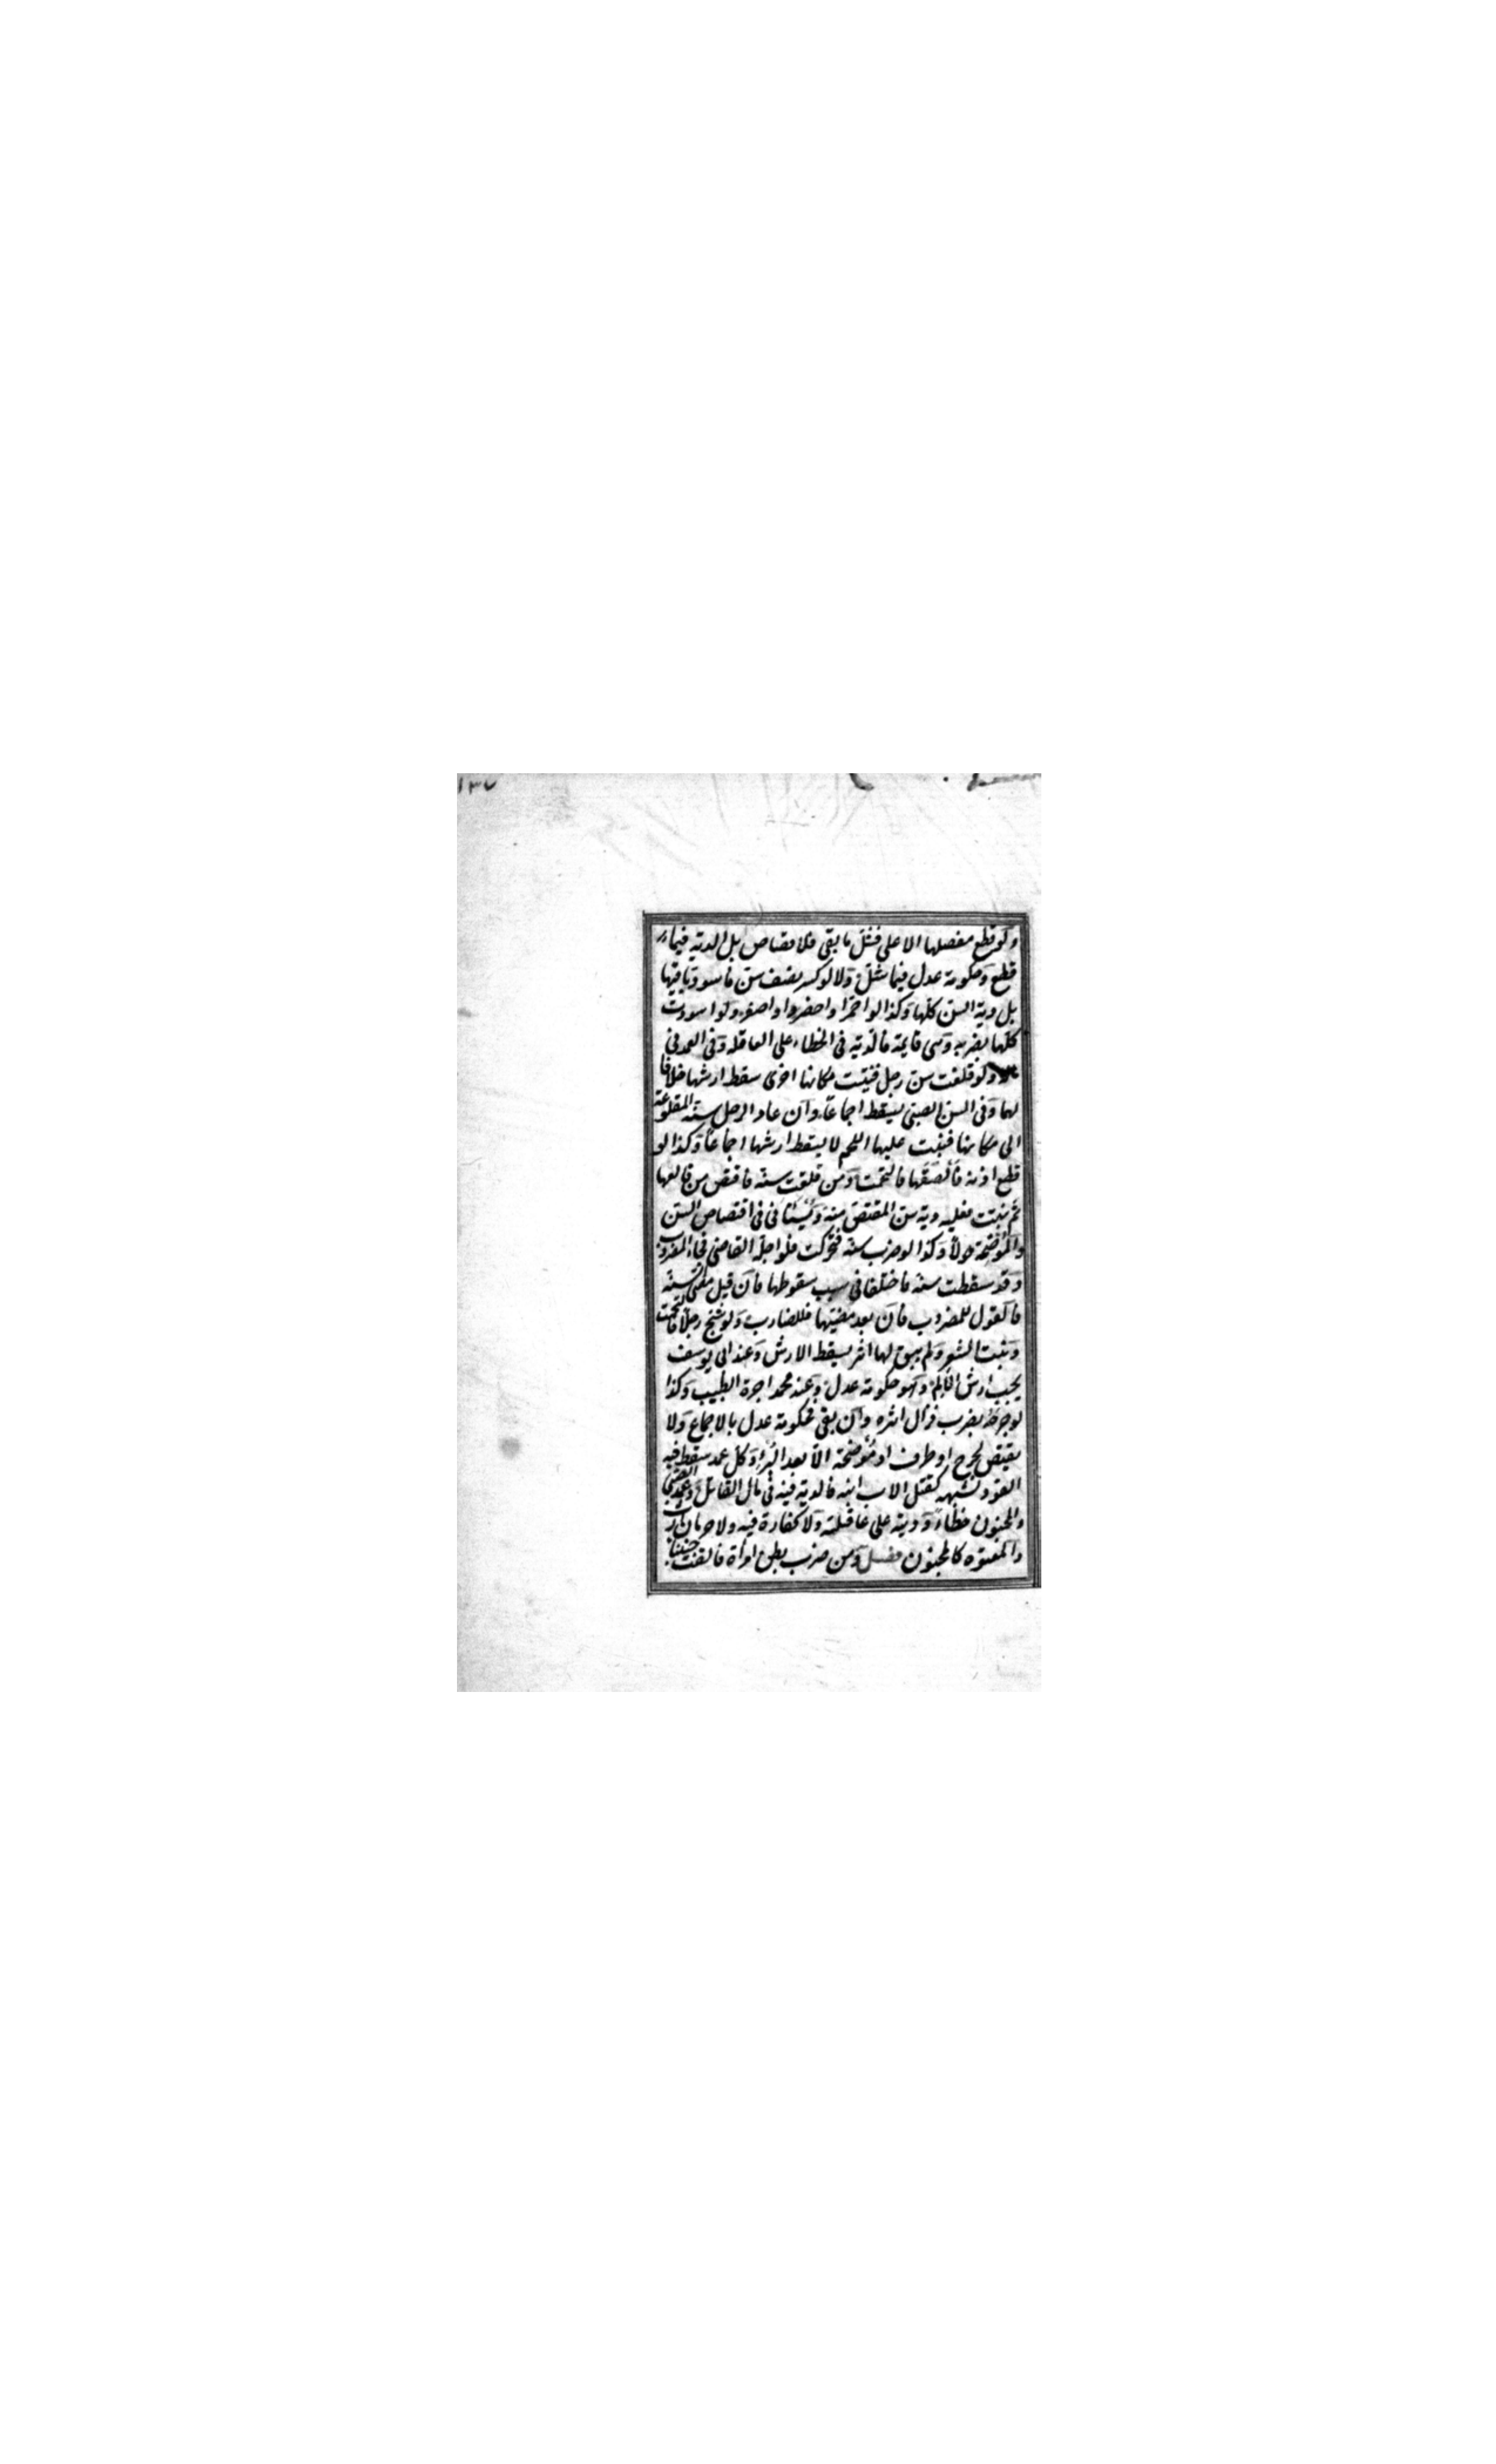 ١٣٧
ولو قطع مفصلها الاعلى فشل ما بقى فلا قصاص بل الدية فيما
قطع وحكومة عدل فيما شل ولا لو كسر نصف سن فاسود باقيها
بل دية السن كلها وكذا لو احمر او اخضر او اصفر ولو اسودت
كلها بضربه وهى قايمة فالدية فى الخطاء على العاقلة وفى العمد فى
ولو قلعت سن رجل فنبتت مكانها اخرى سقط ارشها خلافا
لهما وفى السن الصبى يسقط اجماعا وان عاد الرجل سنه المقلوعة
الى مكانها فنبت عليها اللحم لا يسقط ارشها اجماعا وكذا لو
قطع اذنه فألصقها فالتحمت ومن قلعت سنه فاقتص من قالعها
ثم نبتت فعليه دية سن المقتص منه ويستأنى فى اقتصاص السن
والموضحة حولا وكذا لو ضرب سنه فتحركت فلو اجله القاضى فجاء المضروب
وقد سقطت سنه فاختلفا فى سبب سقوطها فان قبل مضى سنة
فالقول للمضروب فان بعد مضيها فللضارب ولو شج رجلا فالتحمت
ونبت الشعر ولم يبق لها اثر يسقط الارش وعند ابى يوسف
يجب ارش الالم وهو حكومة عدل وعند محمد اجرة الطبيب وكذا
لو جرحه بضرب فزال اثره وان بقى فحكومة عدل بالاجماع ولا
يقتص لجرح او طرف او موضحة الا بعد البرء وكل عمد سقط فيه
القود لشبهة كقتل الاب ابنه فالدية فيه فى مال القاتل وعمد الصبى
والمجنون خطاء وديته على عاقلته ولا كفارة فيه ولا حرمان ارث
والمعتوه كالمجنون فصل ومن ضرب بطن امرأة فالقت جنينا